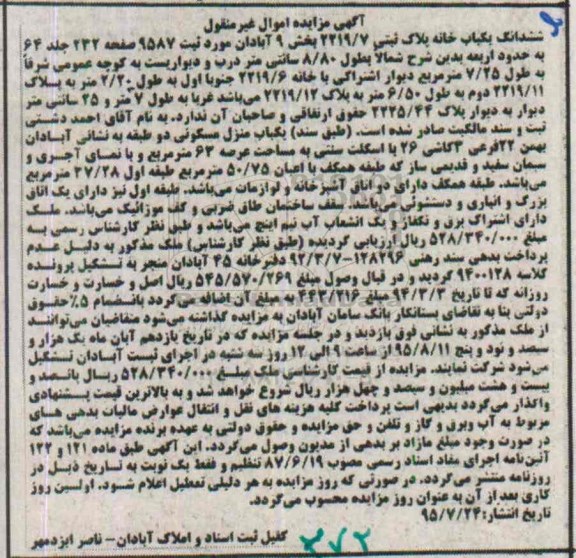 آگهی مزایده اموال غیرمنقول
ششدانگ یکباب خانه پلاک ثبتی ۲۲۱۹/۷ بخش ۹ آبادان مورد ثبت ۹۵۸۷ صفحه ۲۳۲ جلد ۶۴
به حدود اربعه بدین شرح شمالا بطول ۸/۸۰ سانتی متر درب و دیواریست به کوچه عمومی شرقاً
به طول ۷/۲۵ مترمربع دیوار اشتراکی با خانه ۲۲۱۹/۶ جنوبا اول به طول ۲/۲۰ متر به پلاک
۲۲۱۹/۱۱ دوم به طول ۶/۵۰ متر به پلاک ۲۲۱۹/۱۲ می‌باشد غربا به طول ۷ متر و ۲۵ سانتی متر
دیوار به دیوار پلاک ۲۲۲۵/۴۴ حقوق ارتفاقی و صاحبان آن ندارد. به نام آقای احمد دشتی
ثبت و سند مالکیت صادر شده است. (طبق سند) یکباب منزل مسکونی دو طبقه به نشانی آبادان
بهمن ۲۲فرعی ۳کاشی ۲۶ با اسکلت سنتی به مساحت عرصه ۶۳ مترمربع و با نمای آجری و
سیمان سفید و قدیمی ساز که طبقه همکف با اعیان ۵۰/۷۵ مترمربع طبقه اول ۳۷/۲۸ مترمربع
می‌باشد. طبقه همکف دارای دو اتاق آشپزخانه و لوازمات می‌باشد. طبقه اول نیز دارای یک اتاق
بزرگ و انباری و دستشوئی می‌باشد. سقف ساختمان طاق ضربی و کف موزائیک می‌باشد. ملک
دارای اشتراک برق و تکفاز و یک انشعاب آب نیم اینچ می‌باشد و طبق نظر کارشناس رسمی به
مبلغ ۵۲۸/۳۴۰/۰۰۰ ریال ارزیابی گردیده (طبق نظر کارشناس) ملک مذکور به دلیل عدم
پرداخت بدهی سند رهنی ۱۲۸۲۹۶-۹۲/۳/۷ دفترخانه ۴۵ آبادان منجر به تشکیل پرونده
کلاسه ۹۴۰۰۱۲۸ گردید و در قبال وصول مبلغ ۵۴۵/۵۷۰/۲۶۹ ریال اصل و خسارت و خسارت
روزانه که تا تاریخ ۹۴/۳/۳ مبلغ ۲۴۳/۲۱۶ به مبلغ آن اضافه می‌گردد بانضمام ۵٪ حقوق
دولتی بنا به تقاضای بستانکار بانک سامان آبادان به مزایده گذاشته می‌شود متقاضیان می‌توانند
از ملک مذکور به نشانی فوق بازدید و در جلسه مزایده که در تاریخ یازدهم آبان ماه یک هزار و
سیصد و نود و پنج ۹۵/۸/۱۱ از ساعت ۹ الی ۱۲ روز سه شنبه در اجرای ثبت آبادان تشکیل
می‌شود شرکت نمایند. مزایده از قیمت کارشناسی ملک مبلغ ۵۲۸/۳۴۰/۰۰۰ ریال پانصد و
بیست و هشت میلیون و سیصد و چهل هزار ریال شروع خواهد شد و به بالاترین قیمت پیشنهادی
واگذار می‌گردد بدیهی است پرداخت کلیه هزینه های نقل و انتقال عوارض مالیات بدهی های
مربوط به آب وبرق و گاز و تلفن و حق مزایده و حقوق دولتی به عهده برنده مزایده می‌باشد که
در صورت وجود مبلغ مازاد بر بدهی از مدیون وصول می‌گردد. این آگهی طبق ماده ۱۲۱ و ۱۲۲
آئین‌نامه اجرای مفاد اسناد رسمی مصوب ۸۷/۶/۱۹ تنظیم و فقط یک نوبت به تاریخ ذیل در
روزنامه منتشر می‌گردد. در صورتی که روز مزایده به هر دلیلی تعطیل اعلام شود. اولین روز
کاری بعد از آن به عنوان روز مزایده محسوب می‌گردد.
تاریخ انتشار: ۹۵/۷/۲۴
کفیل ثبت اسناد و املاک آبادان - ناصر ایزدمهر
۳۷۲